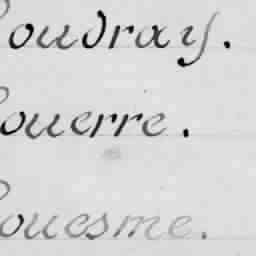 Coudray.
Couerre.
Couesme.